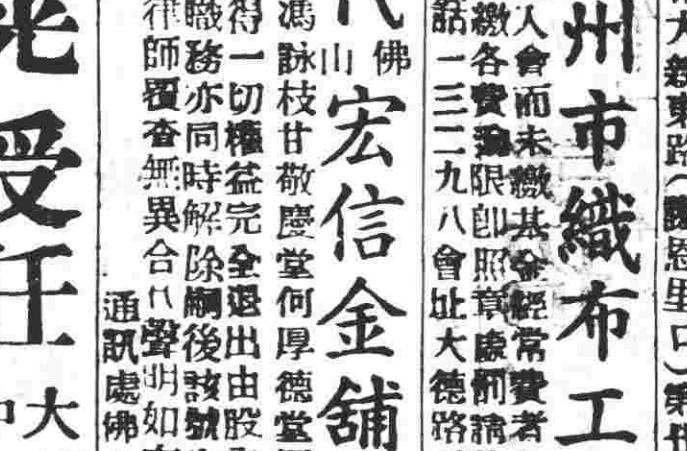 大新東路(
恩里口)第
州市織布工
人會而未繳基金經常費者
繳各費
限卽照章處罰請
話一三二九八會址大德路
代
佛山
宏信金舖
馮詠枝甘敬慶堂何厚德堂
得一切權益完全退出由股
職務亦同時解除嗣後該號
律師覆查無異合
聲明如
通訊處佛
受任
大